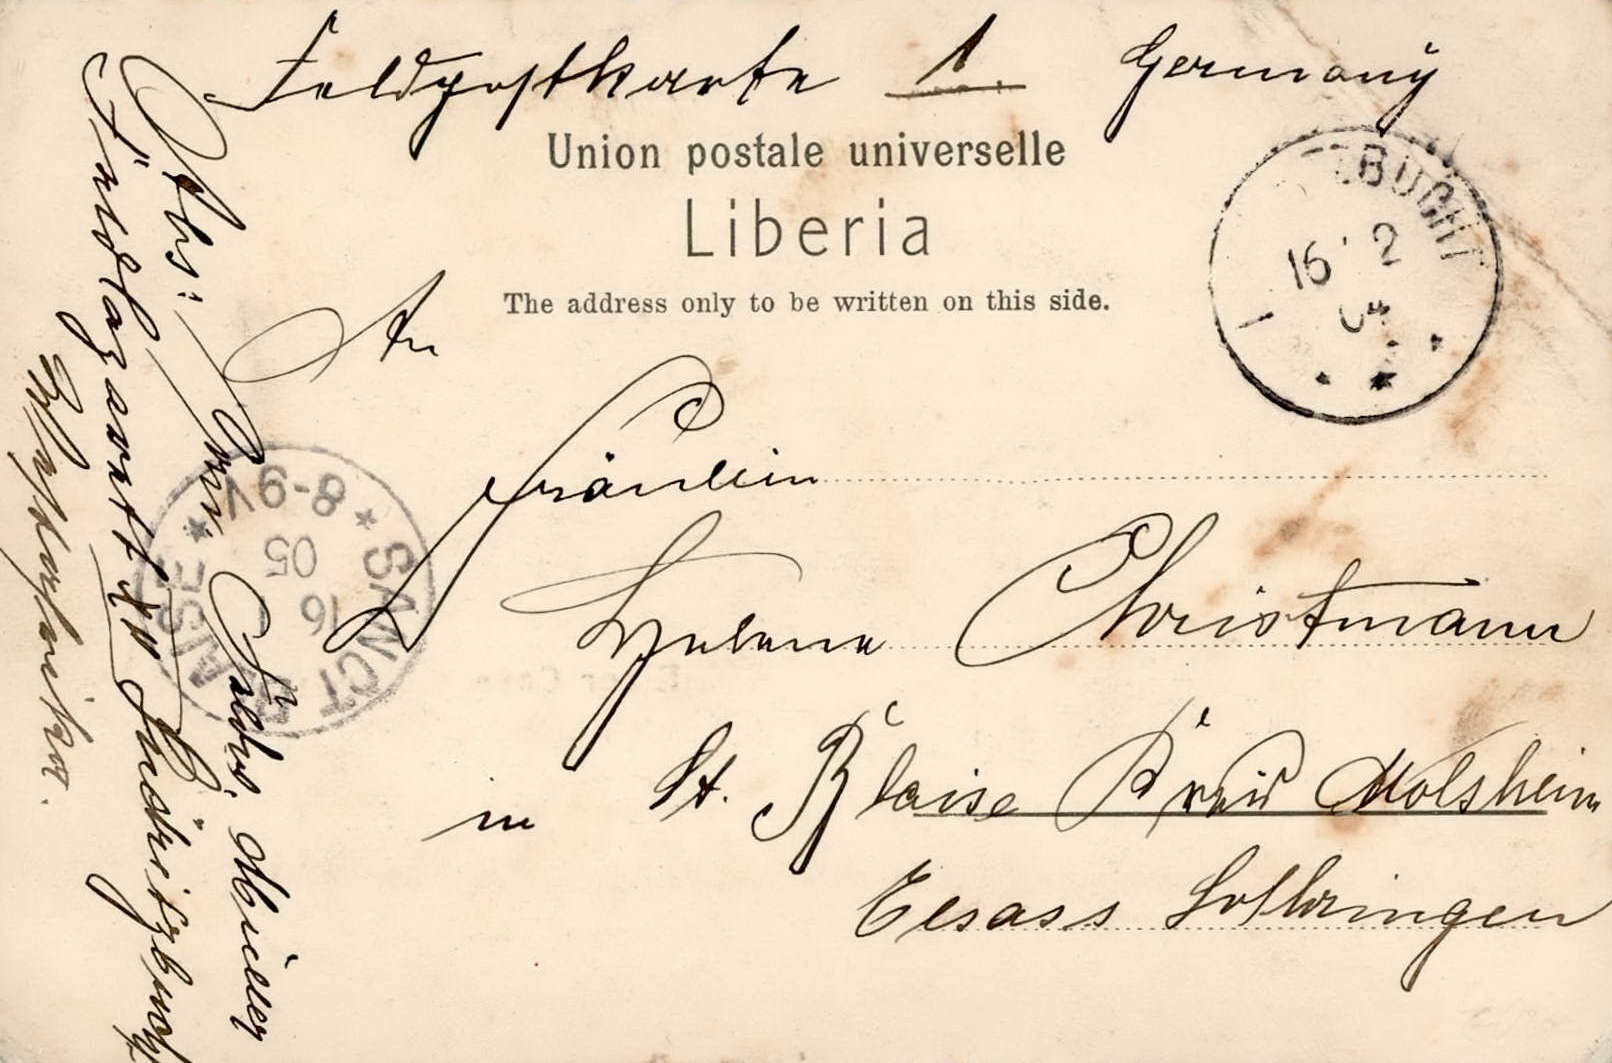 Feldpostkarte 1. Germany
Union postale universelle
Liberia
The address only to be written on this side.
BUCHT
16 2
An
Fräulein
Helene Christmann
in St. Blaise Kreis Molsheim
Elsass Lothringen
SANCT BLAISE
16
05
8-9V
Abs: Müller
Feldlazarett IV